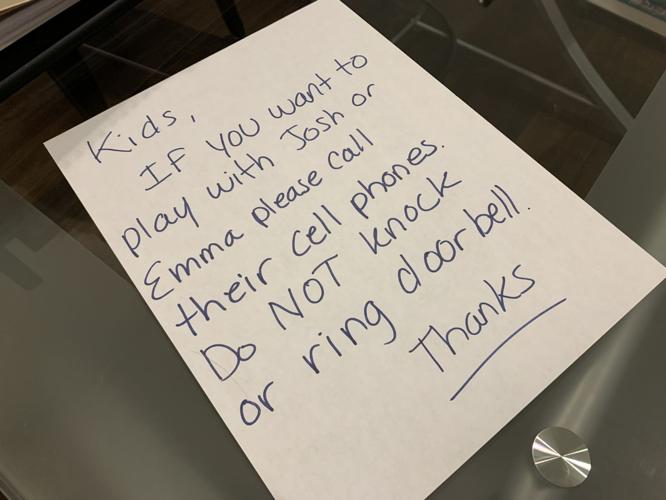 Kids,
If you want to
play with Josh or
Emma please call
their cell phones.
Do NOT knock
or ring doorbell.
Thanks